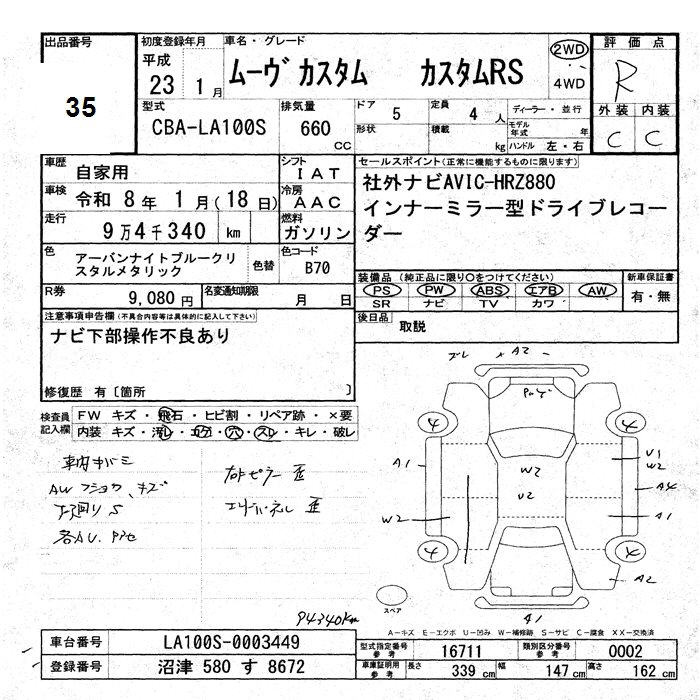 出品番号
35
初度登録年月
平成
23 1月
車名・グレード
ムーヴ カスタム カスタムRS
2WD
4WD
評価点
R
外装 内装
C C
型式
CBA-LA100S
排気量
660 CC
ドア 5
定員 4人
ディーラー・並行
形状
積載 kg
モデル年式 年
ハンドル 左・右
車歴 自家用
シフト IAT
車検 令和 8年 1月(18日)
冷房 AAC
走行 9万4千340 km
燃料 ガソリン
セールスポイント(正常に機能するものに限ります)
社外ナビAVIC-HRZ880
インナーミラー型ドライブレコー
ダー
色 アーバンナイトブルークリ
スタルメタリック
色替
色コード
B70
装備品(純正品に限り○をつけてください)
PS PW ABS エアB AW
SR ナビ TV カワ
新車保証書
有・無
R券 9,080円
名変通知期限 月 日
後日品 取説
注意事項申告欄(不具合内容等は具体的に記入して下さい)
ナビ下部操作不良あり
修復歴 有〔箇所 〕
検査員記入欄
FW キズ・飛石・ヒビ割・リペア跡・×要
内装 キズ・汚レ・コゲ・穴・スレ・キレ・破レ
車内キバミ
AWフショク、キズ
下廻りS
各AU.P7セ
ズレ A2
A1
W2
W2
U2
U1
W2
A4
A1
A2
A1
4
4
4
スペア
94340Km
A-キズ E-エクボ U-凹み W-補修跡 S-サビ C-腐食 XX-交換済
車台番号 LA100S-0003449
登録番号 沼津 580 す 8672
型式指定番号参考 16711
類別区分番号参考 0002
車庫証明用参考 長さ 339 cm 幅 147 cm 高さ 162 cm